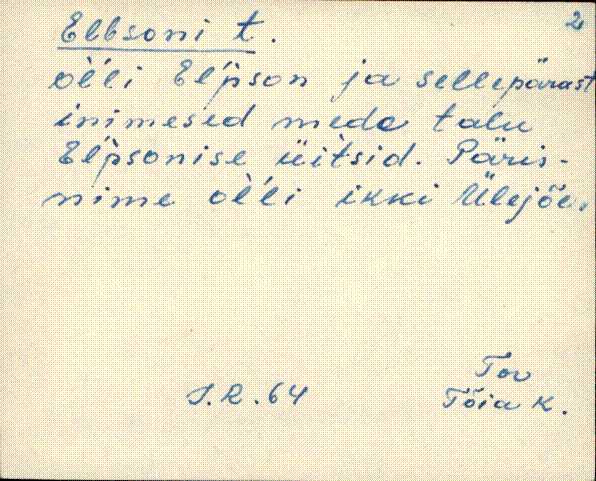 2
Elbsoni t.
òĺli Eĺpson ja sellepärast
inimesed mede talu
Eĺpsonise üitsid. Päris-
nime òĺli ikki Ülejõe.
Tov
J.R.64 Tõia k.